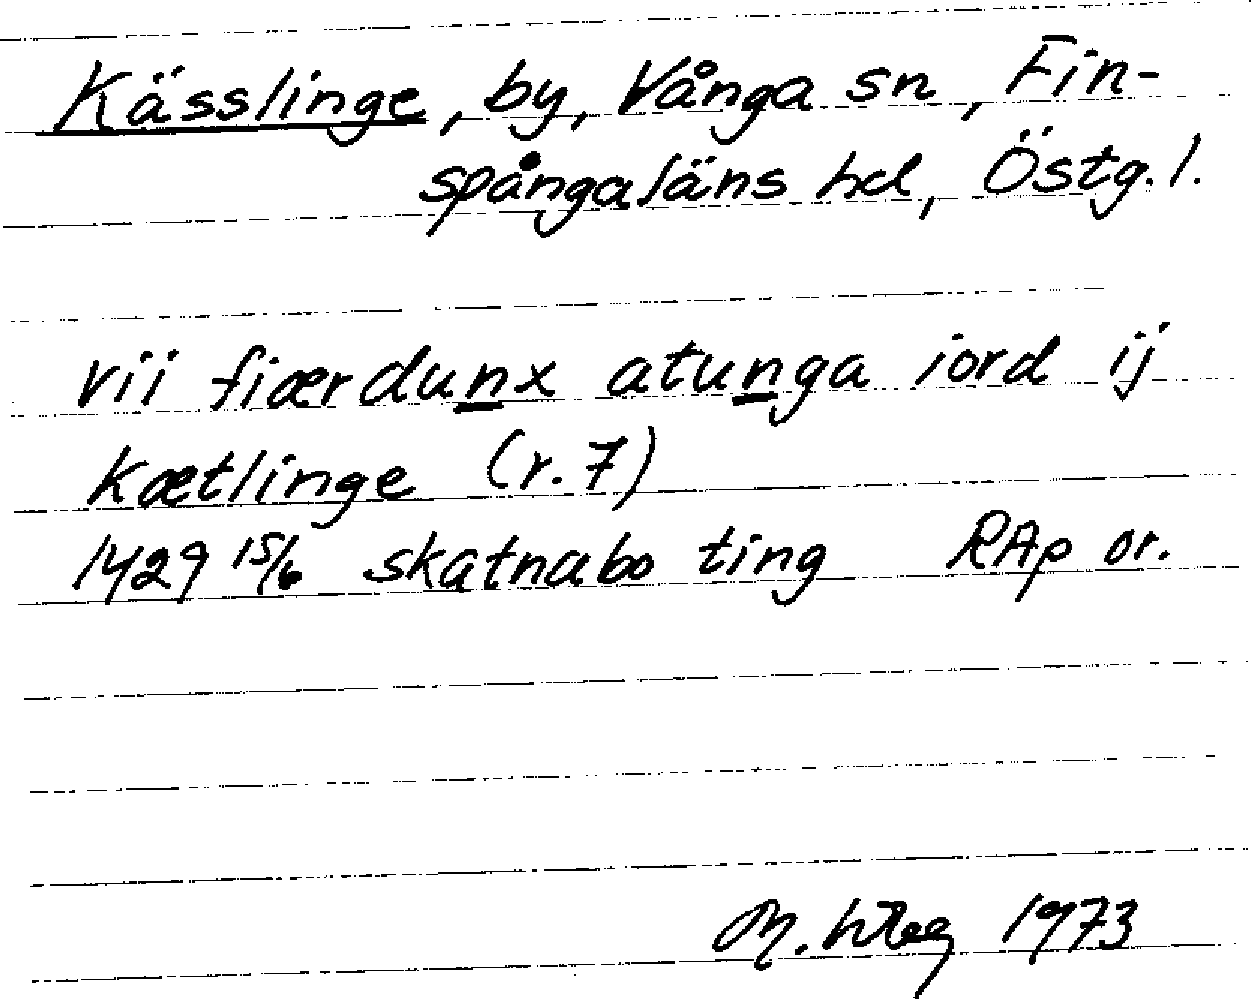 Kässlinge, by, Vånga sn, Fin-
spångaläns hd, Östg. l.
vii fiærdunx atunga iord ij
kætlinge (r. 7)
1429 15/6 skatnabo ting RAp or.
M. 1973